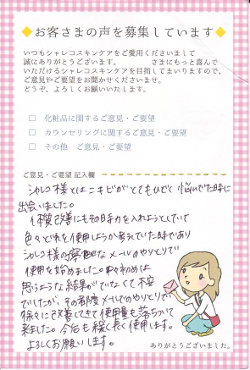 ◆お客さまの声を募集しています◆
いつもシャレコスキンケアをご愛用くださいまして
誠にありがとうございます。 さまにもっと喜んで
いただけるシャレコスキンケアを目指してまいりますので、
ご意見やご要望をお聞かせくださいませ。
どうぞ、よろしくお願いいたします。
□ 化粧品に関するご意見・ご要望
□ カウンセリングに関するご意見・ご要望
□ その他 ご意見・ご要望
ご意見・ご要望 記入欄
様とはニキビがとてもひどく悩んでいた時に
出会いました。
色々どれを使用しようか考えていた時であり
様の メールのやりとりで
使用を始めました。 初めは
思うような結果がでていなくて不安
でしたが、その都度メールでのやりとりで
徐々に改善してきて使用量も落ちついて
来ました。今後も続く長く使用します。
よろしくお願いします。
ありがとうございました。